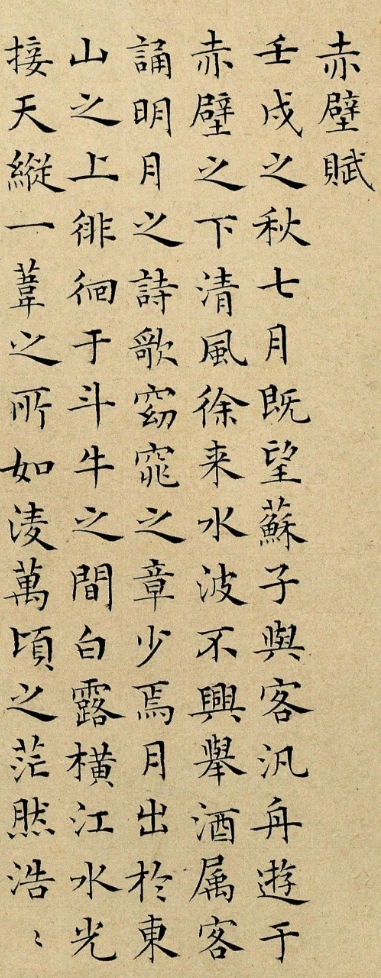 赤壁賦
壬戌之秋七月既望蘇子與客汎舟遊于
赤壁之下清風徐来水波不興舉酒属客
誦明月之詩歌窈窕之章少焉月出於東
山之上徘徊于斗牛之間白露横江水光
接天縱一葦之所如淩萬頃之茫然浩〻